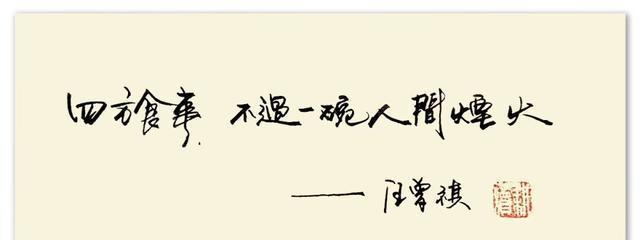 四方食事 不過一碗人間煙火
——汪曾祺